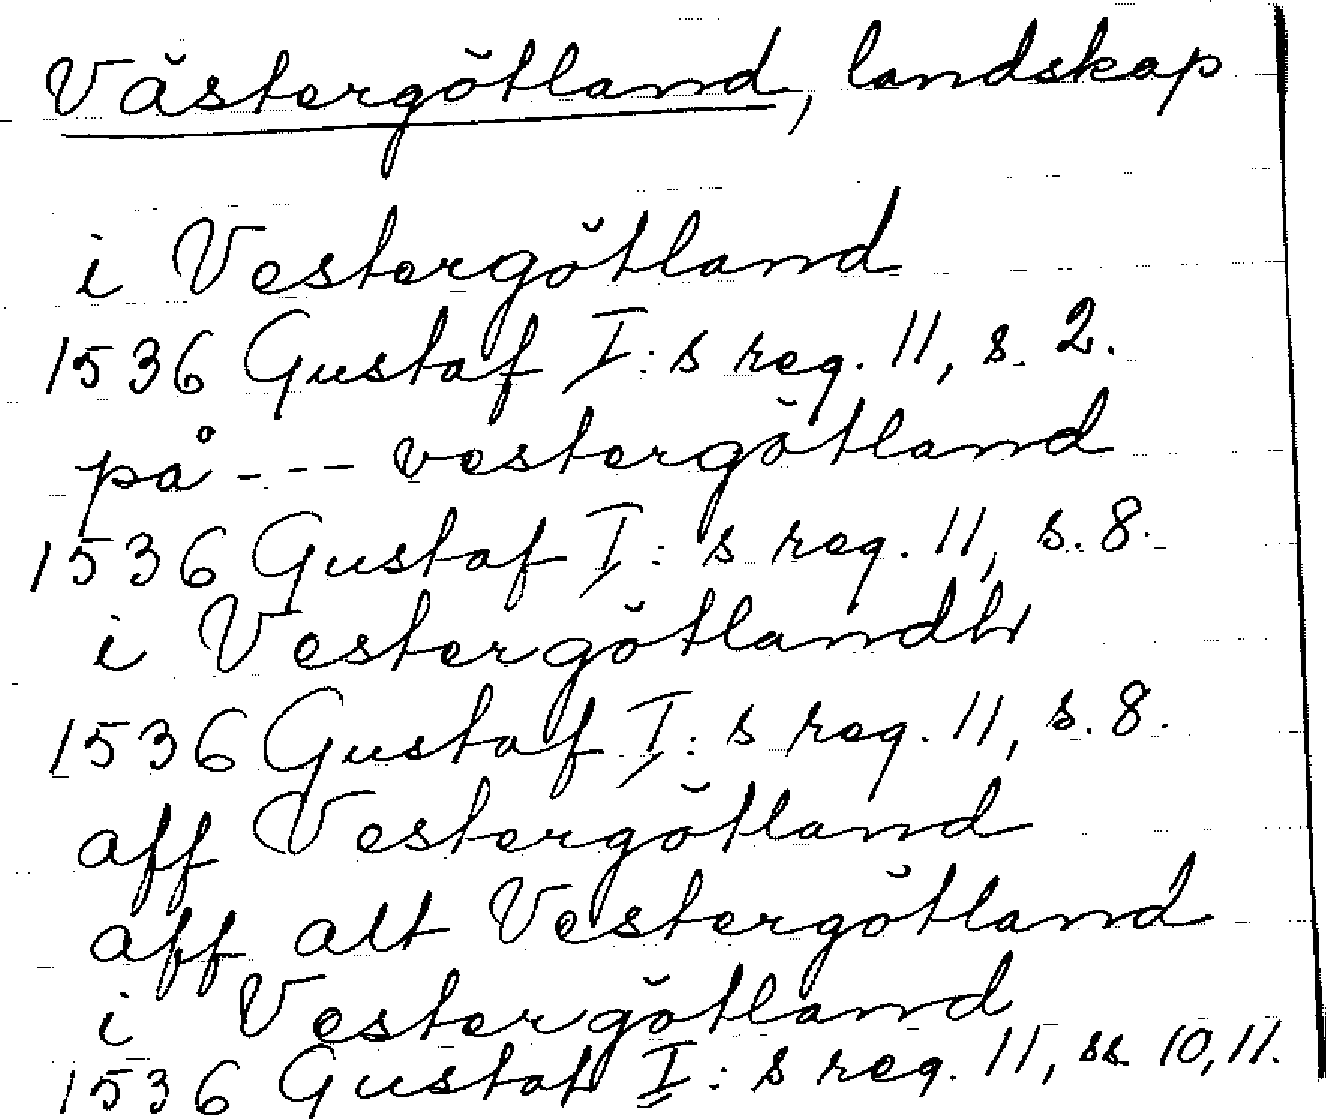 Västergötland, landskap
i Vestergötland
1536 Gustaf I:s reg. 11, s. 2.
på --- vestergötland
1536 Gustaf I:s reg. 11, s. 8.
i Vestergötlandh
1536 Gustaf I:s reg. 11, s. 8.
aff Vestergötland
aff alt Vestergötland
i Vestergötland
1536 Gustaf I:s reg. 11, ss 10, 11.